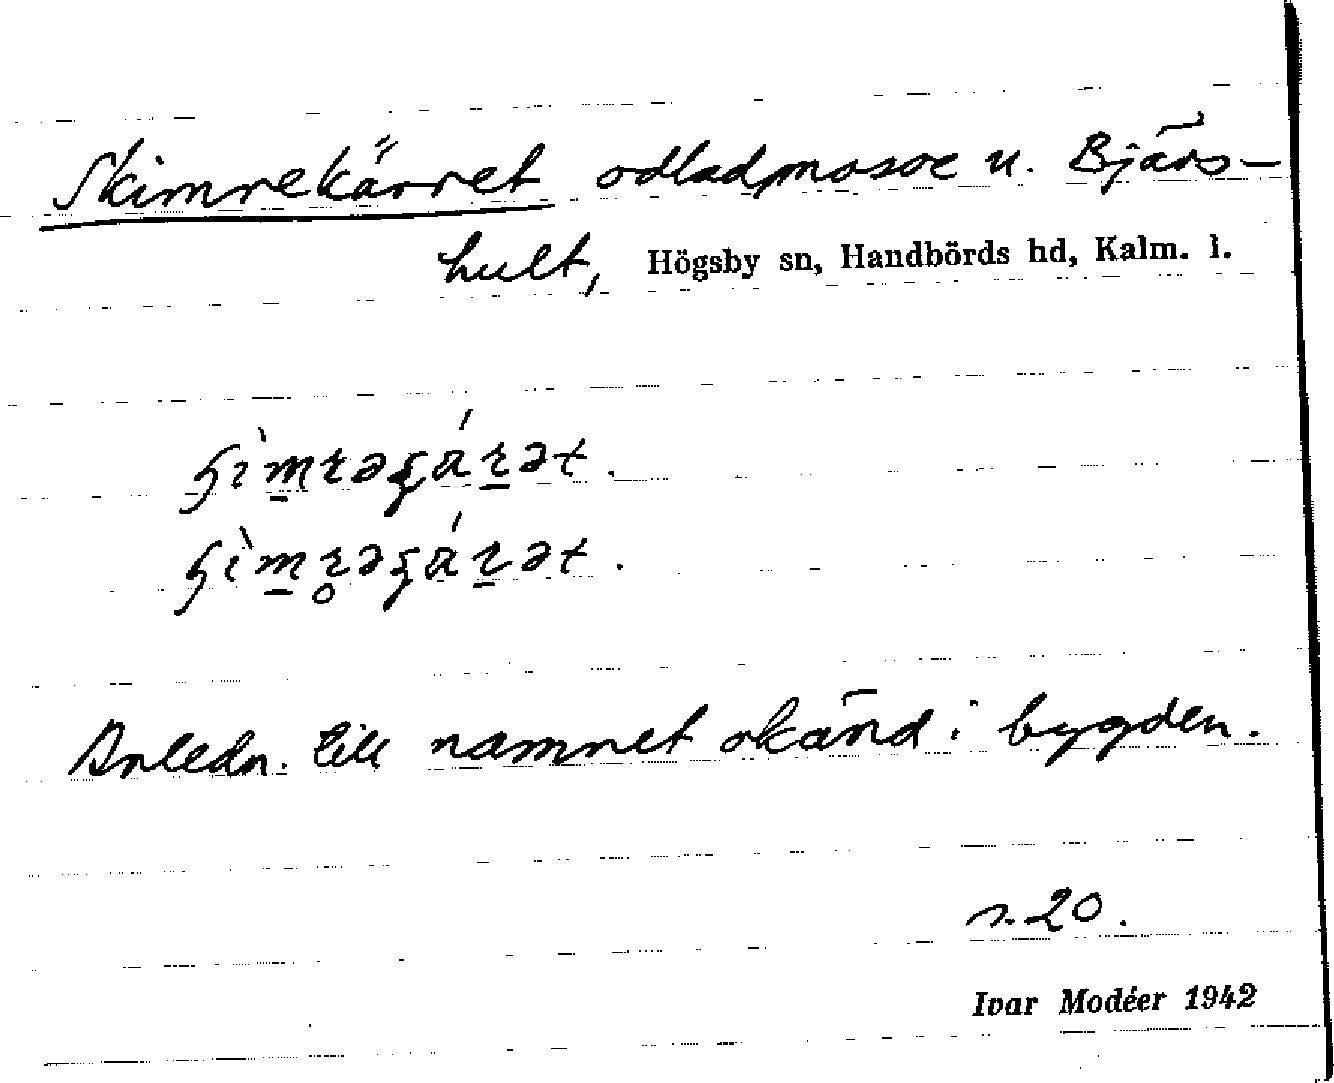 Skimrekärret odlad mosse u. Bjärs-
hult, Högsby sn, Handbörds hd, Kalm. l.
Anledn. till namnet okänd i bygden.
s. 20.
Ivar Modéer 1942